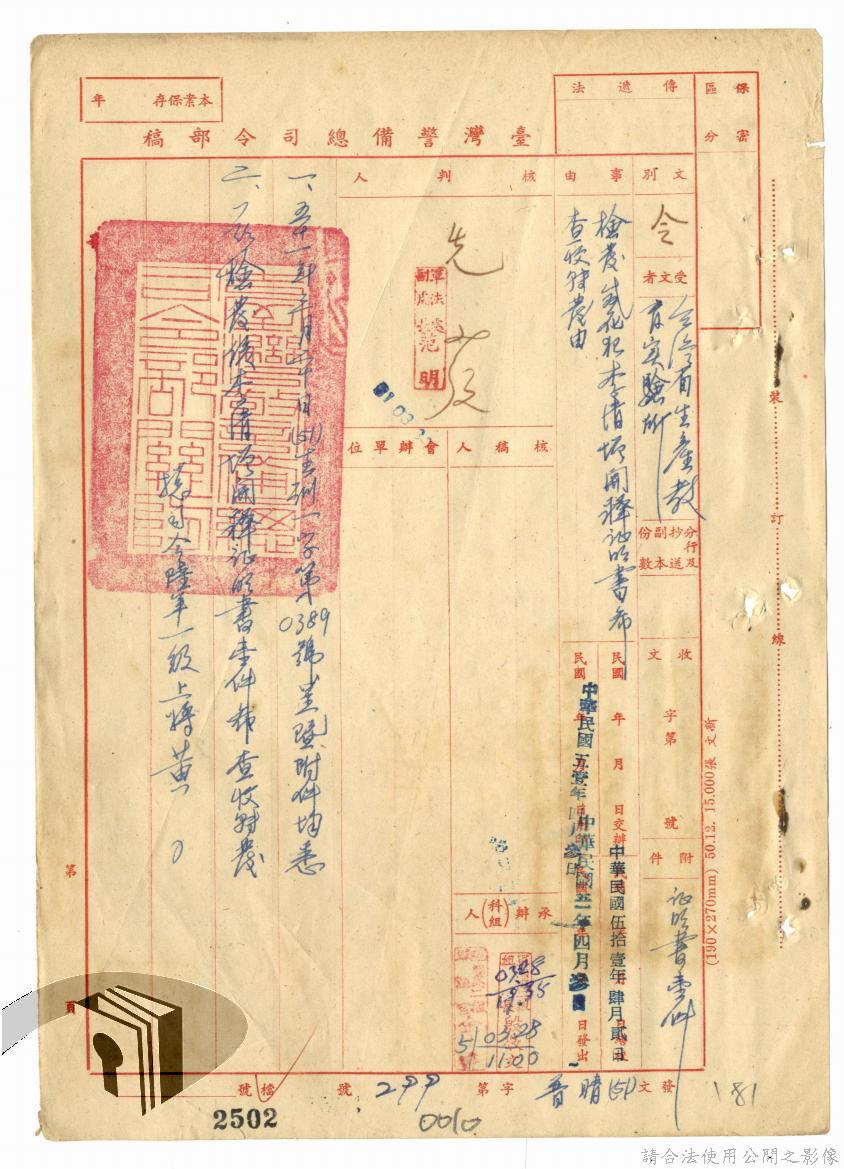 保密
區分
傳遞法
本案保存　年
臺灣警備總司令部稿
文別
令
受文者
台灣省生產教
育實驗所
事由
檢發叛亂犯李清增開釋證明書希
查收轉發由
核判人
先發
軍法處
副處長范明
核稿人
會辦單位
分行及抄送副本份數
收文　字第　號
附件
證明書壹件
民國　年　月　日交辦
中華民國伍拾壹年肆月貳日
中華民國五壹年四月
中華民國五一年四月
日發出
承辦(科組)人
0328
51 0328
1100
一、五十一年三月廿日(51)生訓一字第0389號呈暨附件均悉
二、茲檢發該李清增開釋證明書壹件希查收轉發
總司令陸軍一級上將黃○
第　頁
裝　訂　線
(190×270mm) 50.12. 15.000張 文新
發文(51)
字第
號
檔號
0010
2502
181
請合法使用公開之影像